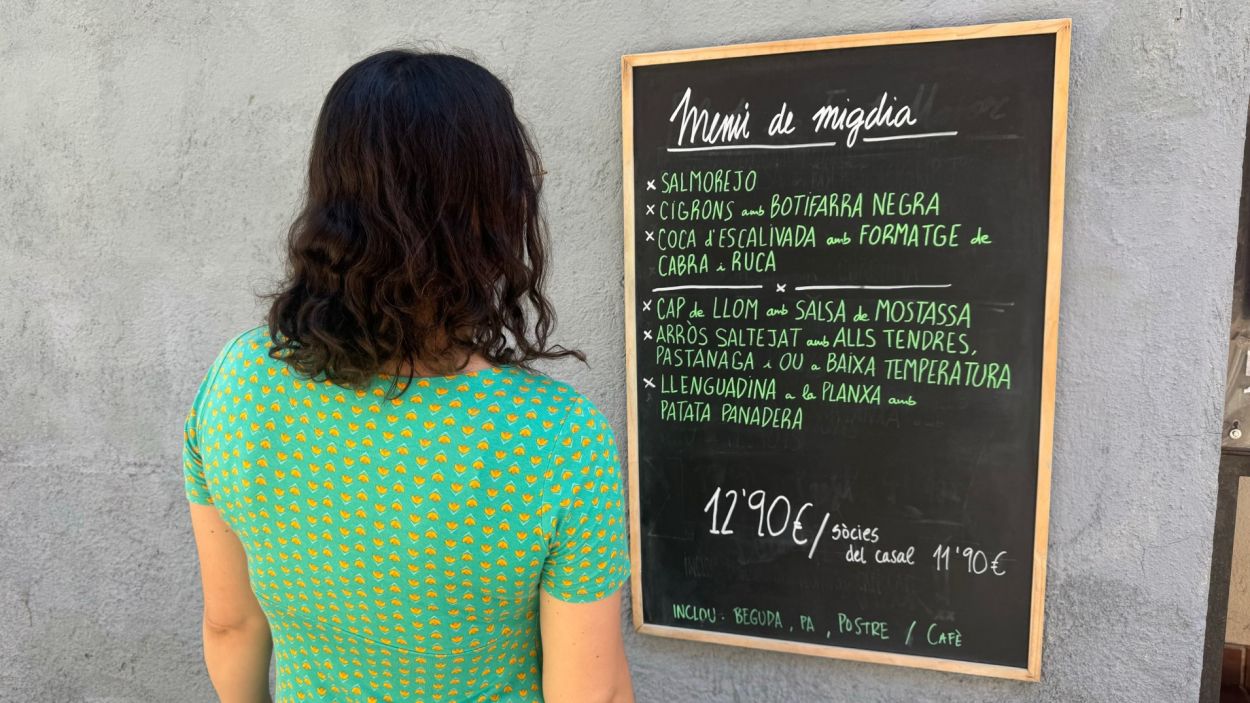 Menú de migdia
x SALMOREJO
x CIGRONS amb BOTIFARRA NEGRA
x COCA d'ESCALIVADA amb FORMATGE de
CABRA i RUCA
x
x CAP de LLOM amb SALSA de MOSTASSA
x ARRÒS SALTEJAT amb ALLS TENDRES,
PASTANAGA i OU a BAIXA TEMPERATURA
x LLENGUADINA a la PLANXA amb
PATATA PANADERA
12'90€/sòcies
del casal 11'90€
INCLOU: BEGUDA, PA, POSTRE / CAFÈ